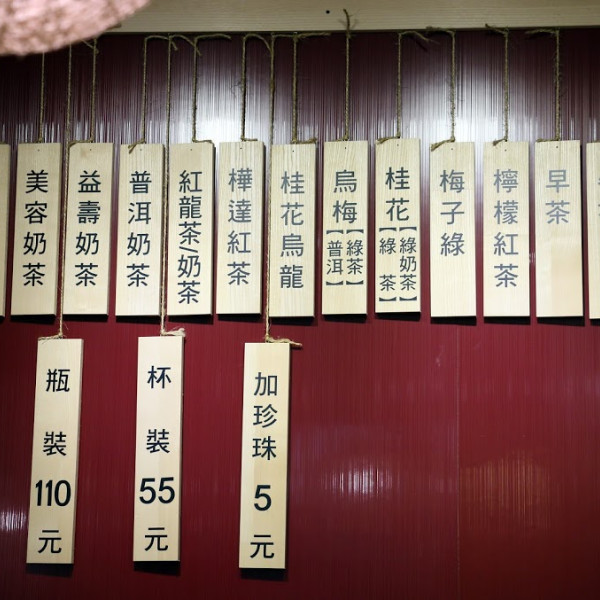 美容奶茶
益壽奶茶
普洱奶茶
紅龍茶/奶茶
樺達紅茶
桂花烏龍
烏梅【綠茶】【普洱】
桂花【綠奶茶】【綠茶】
梅子綠
檸檬紅茶
早茶
瓶裝110元
杯裝55元
加珍珠5元